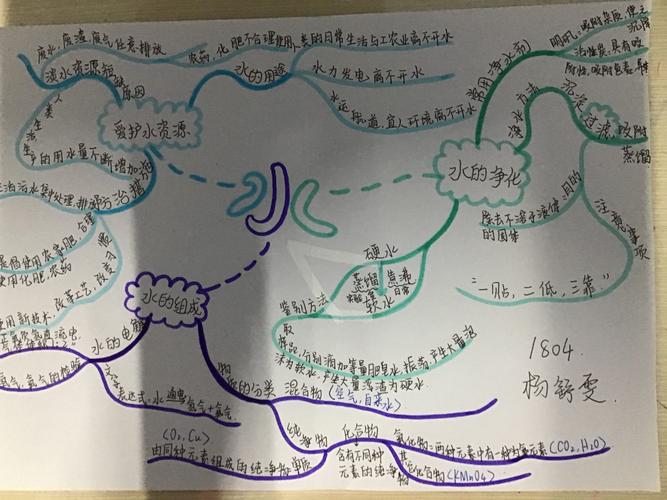 废水，废渣，废气任意排放
农药，化肥不合理使用
人类的日常生活与工农业离不开水
淡水资源短缺
原因
水的用途
水力发电离不开水
水运航道，宜人环境离不开水
爱护水资源
的用水量不断增加
生活污水集中处理，排放
防治措
使用农家肥，合理
使用化肥，农药
改革工艺，改变习
使用新技术
常用净水剂
明矾：吸附杂质，使之
活性炭：具有吸
附性，吸附色素
净水方法
沉淀
过滤
吸附
蒸馏
水的净化
目的
除去不溶于液体
的固体
注意事项
“一贴，二低，三靠.”
硬水
蒸馏
煮沸
实验室
日常
软水
鉴别方法
取样品，分别滴加等量肥皂水，振荡，产生大量泡
沫为软水，产生大量浮渣为硬水
水的组成
水的电解
氢气，氧气的检验
文字
表达式：水 通电 氢气+氧气
物质的分类
混合物（空气，自来水）
纯净物
化合物
含有不同种
元素的纯净物
氧化物：两种元素中有一种为氧元素(CO₂,H₂O)
其它化合物(KMnO₄)
(O₂,Cu)
由同种元素组成的纯净物
单质
1804.
杨舒雯.